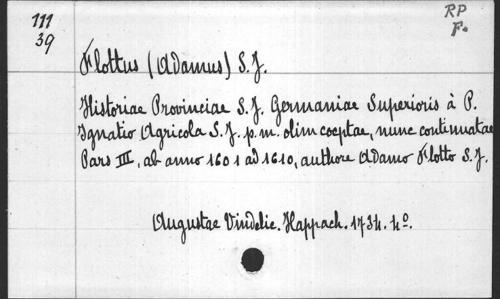 111
39
RP
F.
Flottus (Adamus) S.J.
Historiae Provinciae S.J. Germaniae Superioris à P.
Ignatio Agricola S.J. p.m. olim coeptae, nunc continuatae
Pars III, ab anno 1601 ad 1610, authore Adamo Flotto S.J.
Augustae Vindelic. Happach. 1734. 4º.